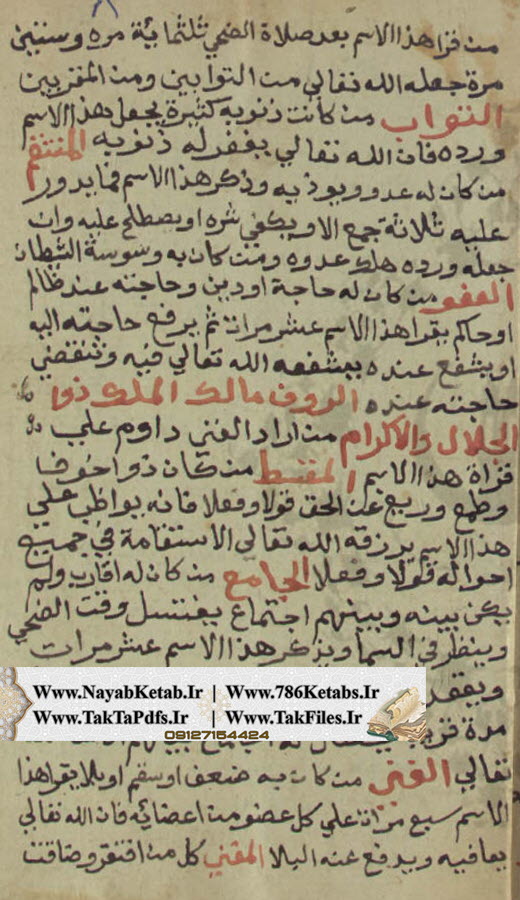 من قراهذا الاسم بعد صلاة الضحي ثلثماية مره وستين
مرة جعله الله تعالي من التوابين ومن المقربين
التواب من كانت ذنوبه كثيرة يجعل هذا الاسم
ورده فان الله تعالي يغفر له ذنوبه المنتقم
من كان له عدو ويوذيه وذكر هذا الاسم فما يدور
عليه ثلاثة جمع الا ويكفي شره او يصطلح عليه وان
جعله ورده هلك عدوه ومن كان به وسوسة الشطان
العفو من كان له حاجة او دين وحاجته عند ظالم
او حاكم يقرا هذا الاسم عشر مرات ثم يرفع حاجته اليه
او يشفع عنده يشفعه الله تعالي فيه وتنقضي
حاجته عنده الروف مالك الملك ذوا
الجلال والاكرام من اراد الغني داوم علي
قراة هذا الاسم المقسط من كان ذوا خوف
وطمع عن الحق قولا وفعلا فانه يواظب علي
هذا الاسم يرزقه الله تعالي الاستقامة في جميع
احواله قولا وفعلا الجامع من كان له اقارب ولم
يكن بينه وبينهم اجتماع يغتسل وقت الضحي
وينظر في السما ويذكر هذا الاسم عشر مرات
ويعقد
Www.NayabKetab.Ir | Www.786Ketabs.Ir
Www.TakTaPdfs.Ir | Www.TakFiles.Ir
09127154424
مدة
تعالي الغني من كان به ضعف او سقم او بلا يقرا هذا
الاسم سبع مرات علي كل عضو من اعضايه فان الله تعالي
يعافيه ويدفع عنه البلا المغني كل من افتقر وضاقت